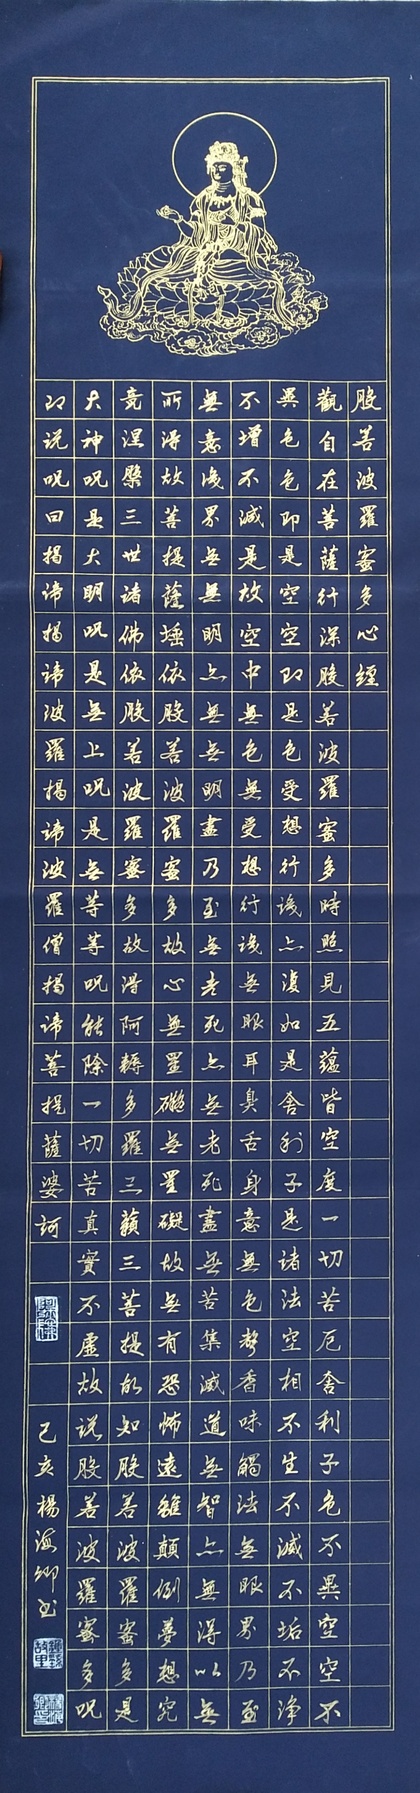 般若波羅蜜多心經
觀自在菩薩行深般若波羅蜜多時照見五蘊皆空度一切苦厄舍利子色不異空空不
異色色即是空空即是色受想行識亦復如是舍利子是諸法空相不生不滅不垢不淨
不增不減是故空中無色無受想行識無眼耳鼻舌身意無色聲香味觸法無眼界乃至
無意識界無無明亦無無明盡乃至無老死亦無老死盡無苦集滅道無智亦無得以無
所得故菩提薩埵依般若波羅蜜多故心無罣礙無罣礙故無有恐怖遠離顛倒夢想究
竟涅槃三世諸佛依般若波羅蜜多故得阿耨多羅三藐三菩提故知般若波羅蜜多是
大神呪是大明呪是無上呪是無等等呪能除一切苦真實不虛故說般若波羅蜜多呪
即說呪曰揭諦揭諦波羅揭諦波羅僧揭諦菩提薩婆訶
己亥楊海卿書